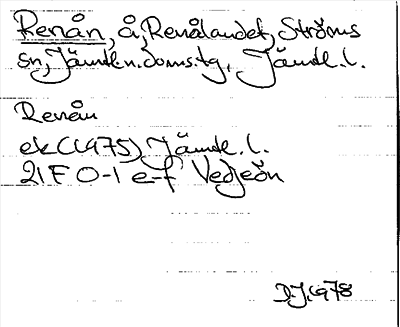 Renån, å, Renålandet, Ströms
sn, Jämtl.n.doms.tg, Jämtl.l.
Renån
ek(1975) Jämtl.l.
21F 0-1 e-f, Vedjeön
D.J.1978